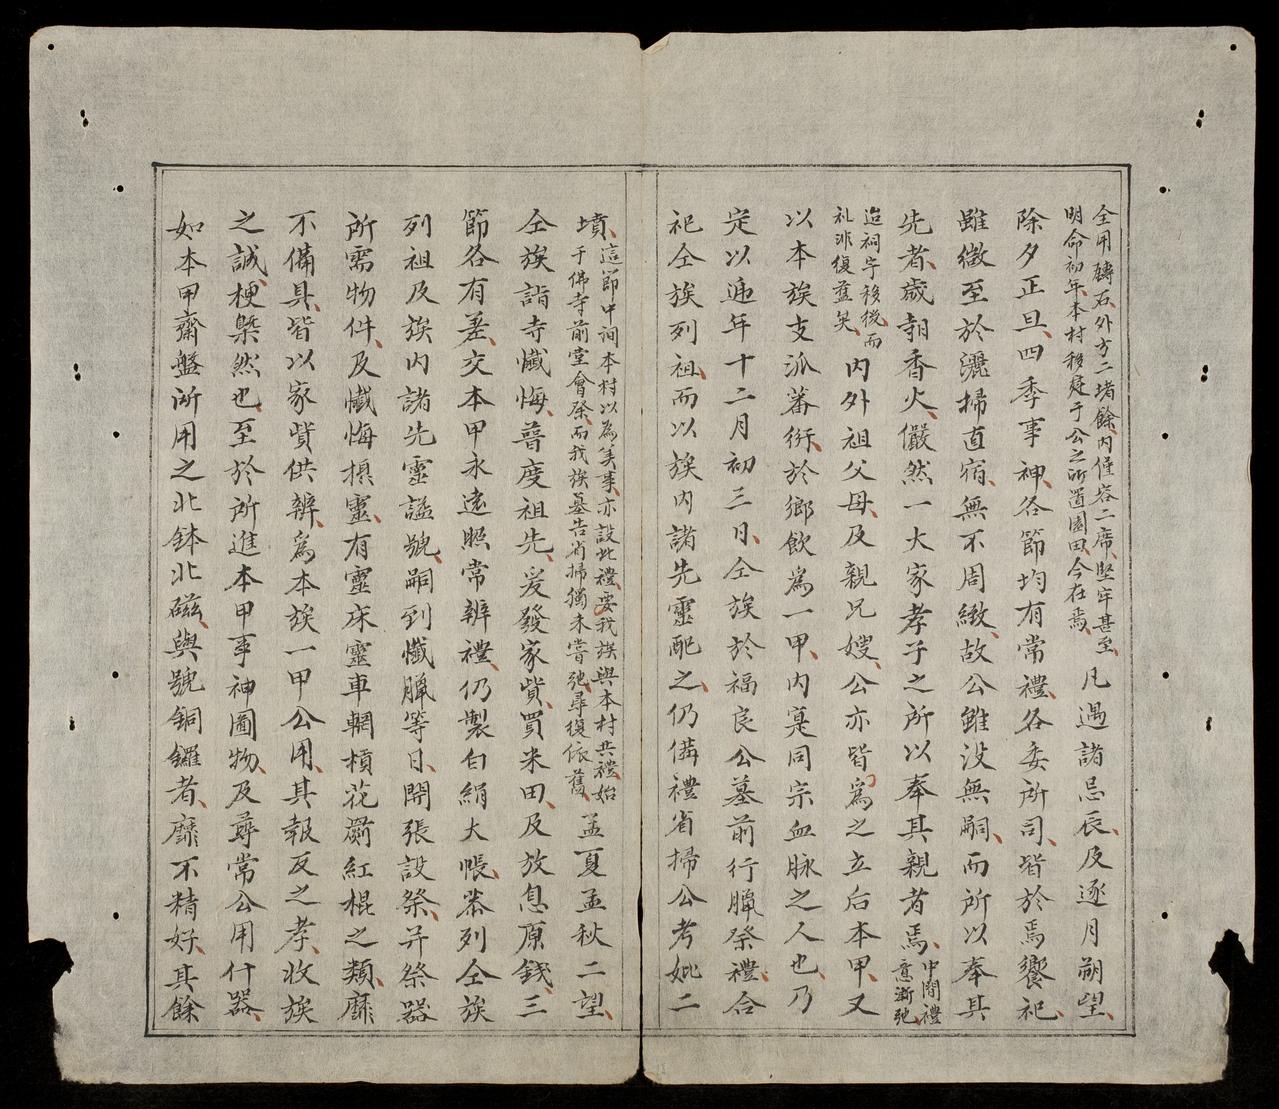 全用磚石、外方二堵餘、內僅容二席、堅牢甚至、
明命初年、本村移建于公之所置園田、今在焉、
凡遇諸忌辰、及逐月朔望、
除夕正旦、四季事神各節、均有常禮、各委所司、皆於焉饗祀、
雖微至於灑掃直宿、無不周緻、故公雖沒無嗣、而所以奉其
先者、歲朝香火、儼然一大家孝子之所以奉其親者焉、
中間禮
意漸弛
迨祠宇移後、而
礼非復舊矣、
內外祖父母、及親兄嫂、公亦皆為之立后本甲、又
以本族支派蕃衍、於鄉飲為一甲、內寔同宗血脉之人也、乃
定以遞年十二月初三日、仝族於福良公墓前行臘祭禮、合
祀仝族列祖、而以族內諸先靈配之、仍備禮省掃公考妣二
墳、
這節中間本村以為美事、亦設此禮、要我族與本村共禮、始
于佛寺前堂會祭、而我族墓告省掃獨未嘗弛、尋復依舊、
孟夏孟秋二望、
仝族詣寺懺悔、普度祖先、爰發家貲、買米田、及放息原錢、三
節各有差、交本甲永遠照常辨禮、仍製白絹大帳、恭列仝族
列祖及族內諸先靈謚號、嗣到懺臘等日、開張設祭、并祭器
所需物件、及懺悔損靈、有靈床靈車輞槓花藹紅棍之類、靡
不備具、皆以家貲供辨、為本族一甲公用、其報反之孝、收族
之誠、梗槩然也、至於所進本甲事神圖物、及尋常公用什器、
如本甲齋盤所用之北鉢北磁、與號銅鑼者、靡不精好、其餘